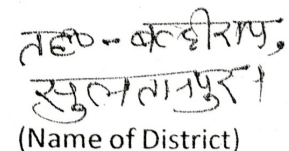 तह० - बल्दीराय,
सुलतानपुर।
(Name of District)